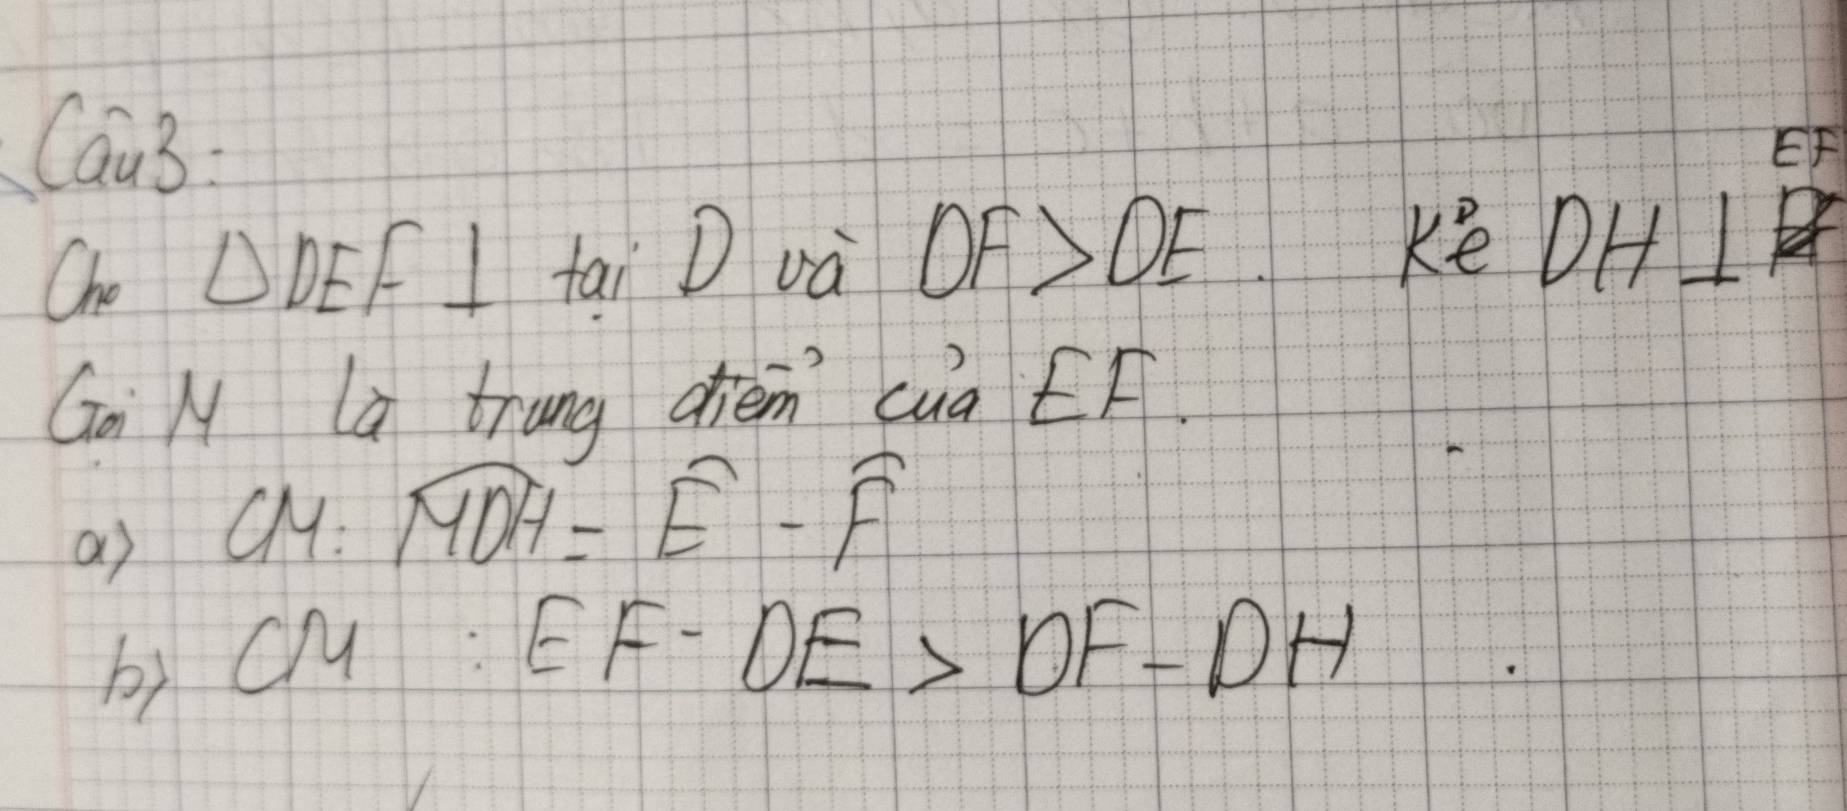 Câu 3:
Cho ΔDEF ⊥ tại D và DF > DE. Kẻ DH ⊥ EF
Gọi M là trung điểm của EF.
a) CM: \widehat{MDH} = \widehat{E} - \widehat{F}
b) CM : EF - DE > DF - DH .